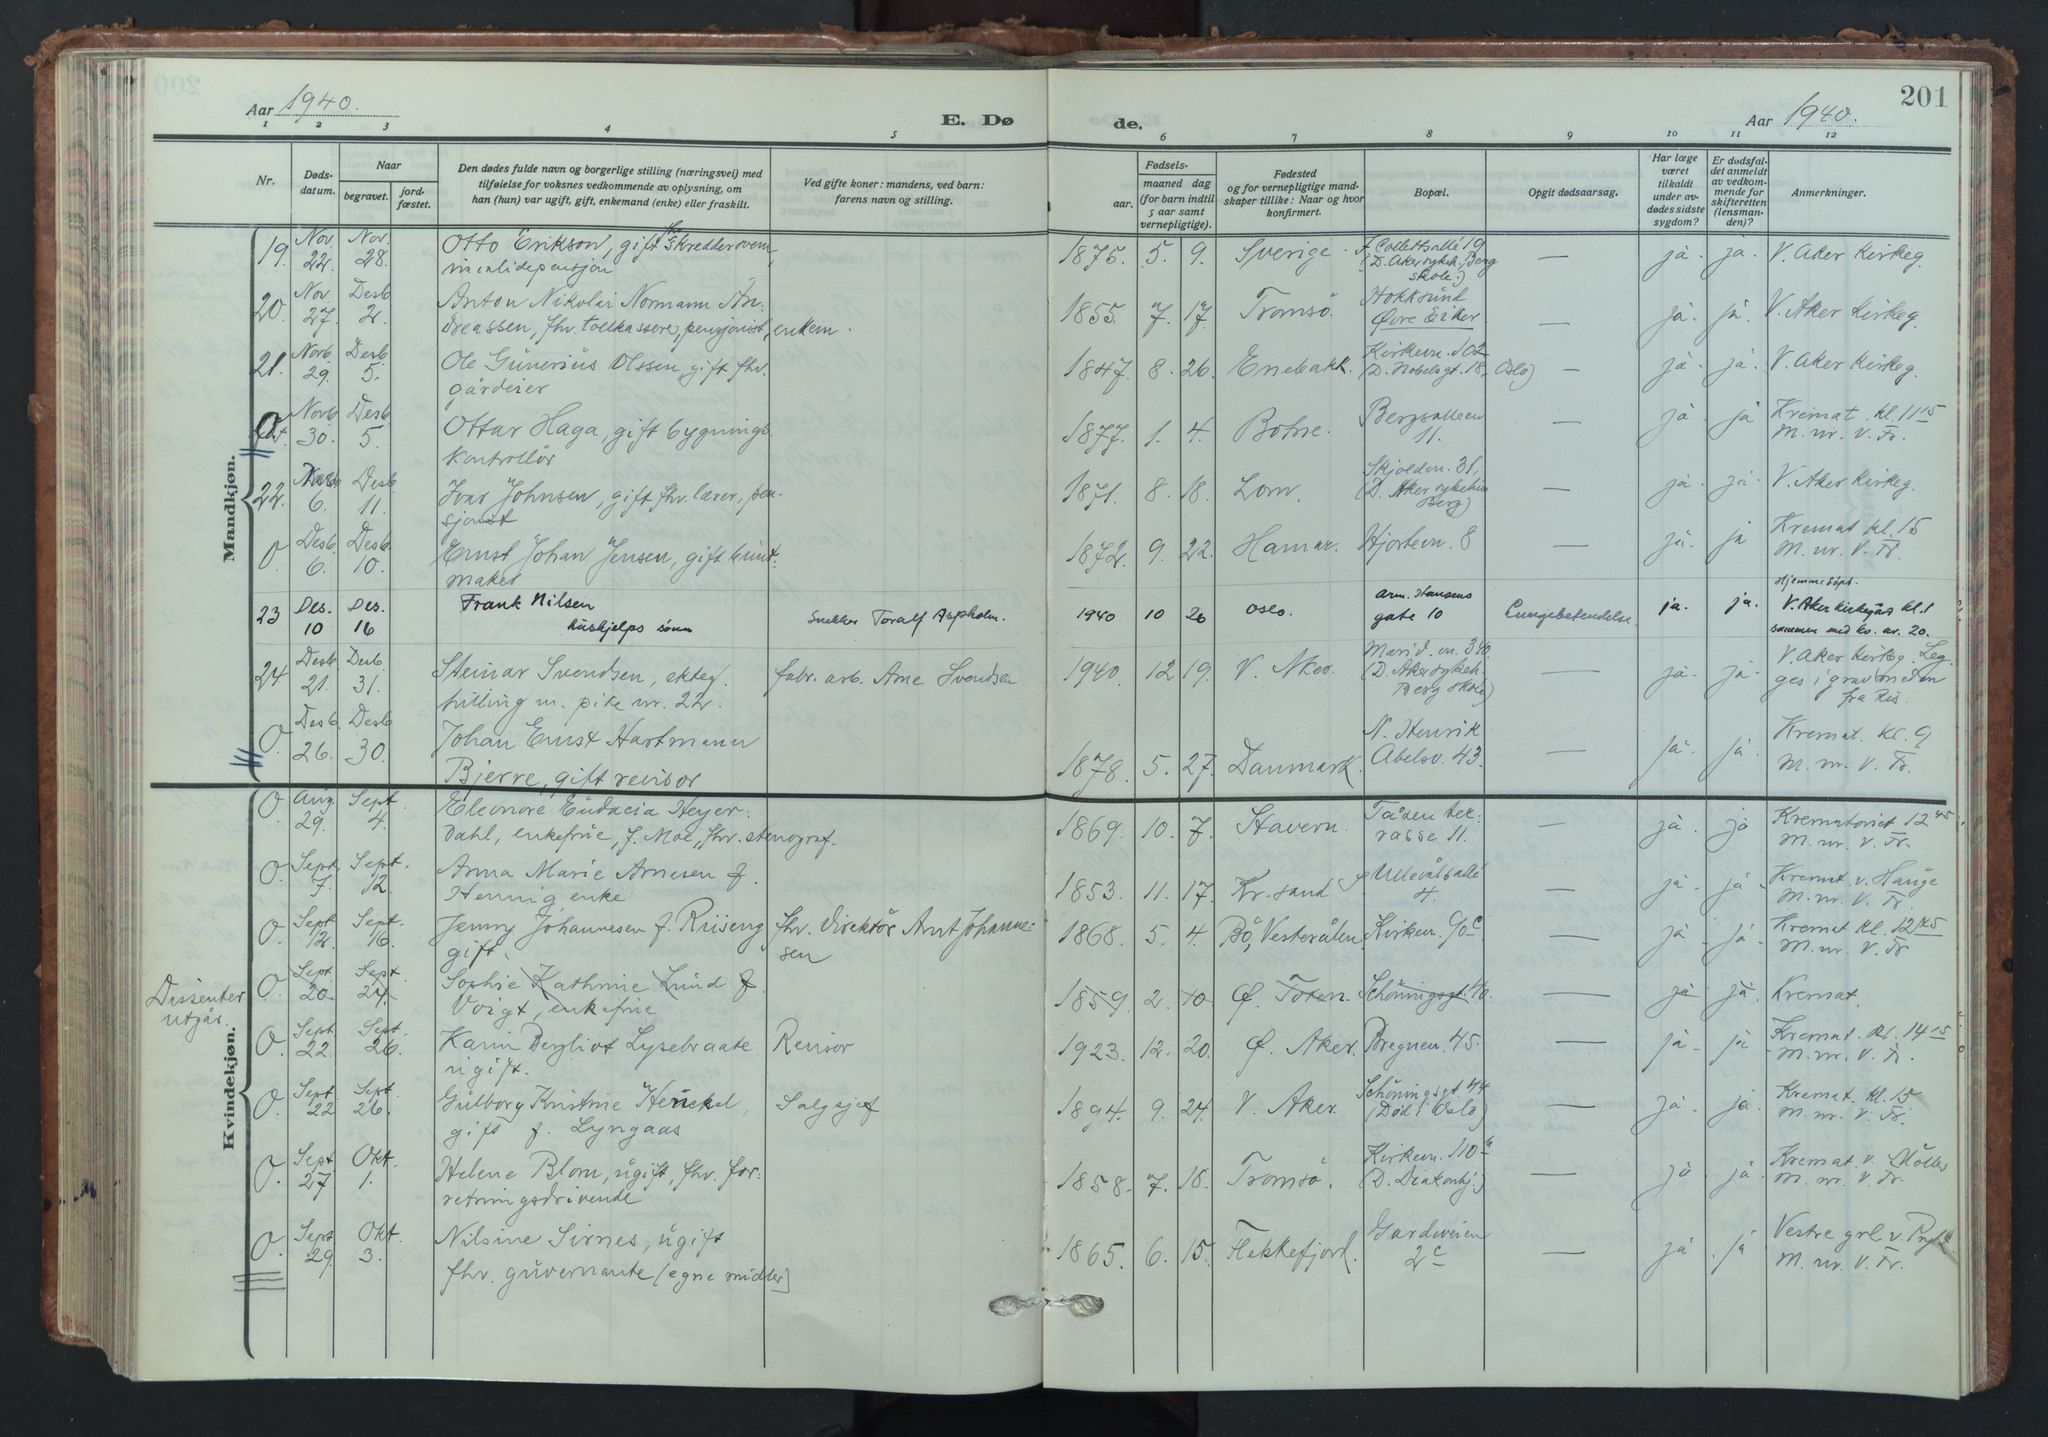 Aar 1940.
E. Døde.
201
Aar 1940.
1 2 3 4 5 6 7 8 9 10 11 12
Nr.
Døds-
datum.
Naar
begravet.
jord-
fæstet.
Den dødes fulde navn og borgerlige stilling (næringsvei) med
tilføielse for voksnes vedkommende av oplysning, om
han (hun) var ugift, gift, enkemand (enke) eller fraskilt.
Ved gifte koner: mandens, ved barn:
farens navn og stilling.
Fødsels-
aar.
maaned dag
(for barn indtil
5 aar samt
vernepligtige).
Fødested
og for vernepligtige mand-
skaper tillike: Naar og hvor
konfirmert.
Bopæl.
Opgit dødsaarsag.
Har læge
været
tilkaldt
under av-
dødes sidste
sygdom?
Er dødsfal-
det anmeldt
av vedkom-
mende for
skifteretten
(lensman-
den)?
Anmerkninger.
Mandkjøn.
19. Nov. 22. Nov. 28. Otto Erikson, gift fhv. skreddersvenn,
invalidepensjon
1875. 5. 9. Sverige. F. Collettsallé 19
(D. Aker sykeh. Berg
skole.)
— ja. ja. V. Aker Kirkeg.
20. Nov. 27. Desb. 2. Anton Nikolai Normann An-
dreassen, fhv. tollkasserer, pensjonist, enkem.
1855. 7. 17. Tromsö. Hokksund
Øvre Eiker
— ja. ja. V. Aker Kirkeg.
21. Novb. 29. Desb. 5. Ole Gunerius Olssen, gift fhv.
gårdeier
1847. 8. 26. Enebakk. Kirkevn. 102
(D. Nobelsgt. 18, Oslo)
— ja. ja. V. Aker Kirkeg.
O Novb. 30. Desb. 5. Ottar Haga, gift bygnings-
kontrollör
1877. 1. 4. Botne. Bergsalleen
11.
— ja. ja Kremat. kl. 11 15
M. nr. V. Fr.
22. 6. Desb. 11. Ivar Johnsen, gift fhv. lærer, pen-
sjonist
1871. 8. 18. Lom. Skjolden. 31,
(D. Aker sykehus
Berg)
— ja. ja. V. Aker Kirkeg.
O. Desb. 6. Desb. 10. Ernst Johan Jensen, gift bunt-
maker
1872. 9. 22. Hamar. Hjortevn. 8
— ja. ja Kremat kl. 15
M. nr. V. Fr.
23 Des. 10 Des. 16 Frank Nilsen
hushjelps sønn
Snekker Toralf Aspholm.
1940 10 26 Oslo. Arm. Hansens
gate 10
Lungebetendelse. ja. ja. Hjemmedøpt.
V. Aker kirkegård kl. 1
sammen med kv. nr. 20.
24 Desb. 21. Desb. 31. Steinar Svendsen, ekteg.
tvilling m. pike nr. 22.
fabr. arb. Arne Svendsen
1940. 12 19. V. Aker. Marid. vn. 340.
(D. Aker sykeh.
Berg skole)
— ja. ja. V. Aker Kirkeg. Leg-
ges i grav
fra Ris.
O. Desb. 26. Desb. 30. Johan Ernst Hartmann
Bjerre, gift revisor
1878. 5. 27. Danmark. N. Henrik
Abelsv. 43.
— ja. ja. Kremat. kl. 9
M. nr. V. Fr.
Kvindekjøn.
O. Aug. 29. Sept. 4. Eleonore Eudacia Heyer-
dahl, enkefrue, f. Moe, fhv. stenograf.
1869. 10. 7. Stavern. Tåsen ter-
rasse 11.
— ja. ja Krematoriet 12 45
M. nr. V. Fr.
O. Sept. 7. Sept. 12. Anna Marie Arnesen f.
Hennig, enke
1853. 11. 17. Kr. sand Ullevålsallé
4.
— ja. ja. Kremat. v. Hauge
M. nr. V. Fr.
O. Sept 12. Sept. 16. Jenny Johannesen f. Riiseng
gift.
fhv. direktör Arnt Johanne-
sen
1868. 5. 4. Bö, Vesterålen.
— ja. ja. Kremat kl. 12 45
M. nr. V. Fr
Dissenter
utgår.
O. Sept 20. Sept 24. Sophie Kathrine Lund f.
Voigt, enkefrue
1859. 2. 10. Ø. Toten. Schöningsgt. 40.
— ja. ja. Kremat.
O. Sept 22. Sept. 26. Karin Bergliot Lysebraate
ugift.
Revisor
1923. 12. 20. Ø. Aker. Bregnev. 45.
— ja. ja Kremat. kl. 14 15
M. nr. V. Fr.
O. Sept. 22 Sept. 26. Gulborg Kristine Henckel,
gift f. Lyngaas
Salgssjef
1894. 9. 24. V. Aker. Schöningsgt 44
(Död i Oslo)
— ja. ja. Kremat. kl. 15
M. nr. V. Fr.
O. Sept 27 Okt. 1. Helene Blom, ugift, fhv. for-
retningsdrivende
1858. 7. 18. Tromsö. Kirkevn. 110
(D. Diakonhj.)
— ja. ja. Kremat. v. Möller
M. nr. V. Fr.
O. Sept 29. Okt. 3. Nilsine Sirnes, ugift
fhv. guvernante (egne midler)
1865. 6. 15. Flekkefjord. Gardeveien
2 c
— ja. ja Vestre grl. v.
M. nr. V. Fr.